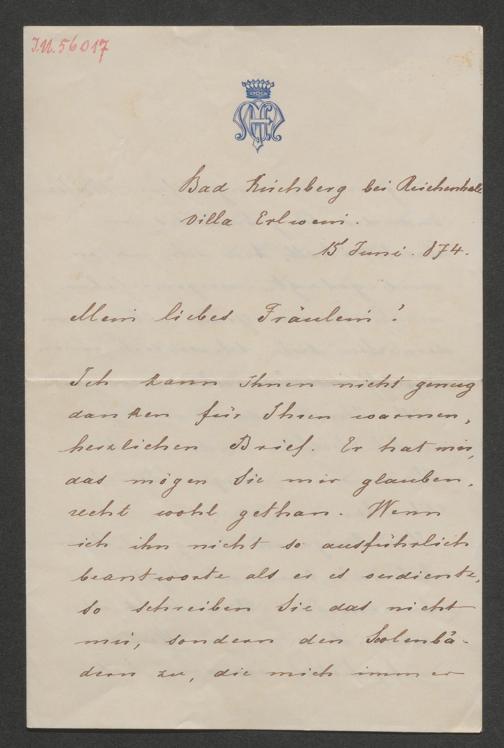 I.N. 56017
Bad Kirchberg bei Reichenhall
Villa Erlwein.
15 Juni. 874.
Mein liebes Fräulein!
Ich kann Ihnen nicht genug
danken für Ihren warmen,
herzlichen Brief. Er hat mir,
das mögen Sie mir glauben,
recht wohl gethan. Wenn
ich ihn nicht so ausführlich
beantworte als er es verdiente,
so schreiben Sie das nicht
mir, sondern den Soolenbä-
dern zu, die mich immer